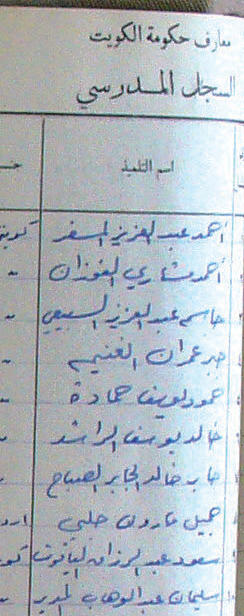 معارف حكومة الكويت
السجل المدرسي
اسم التلميذ
أحمد عبد العزيز المسفر
أحمد مشاري الفوزان
جاسم عبد العزيز السبيعي
عمران الغنيم
حمود يوسف حمادة
خالد يوسف الراشد
جابر خالد الجابر الصباح
جميل فاروق حلبي
سعود عبد الرزاق الياقوت
سليمان عبد الوهاب